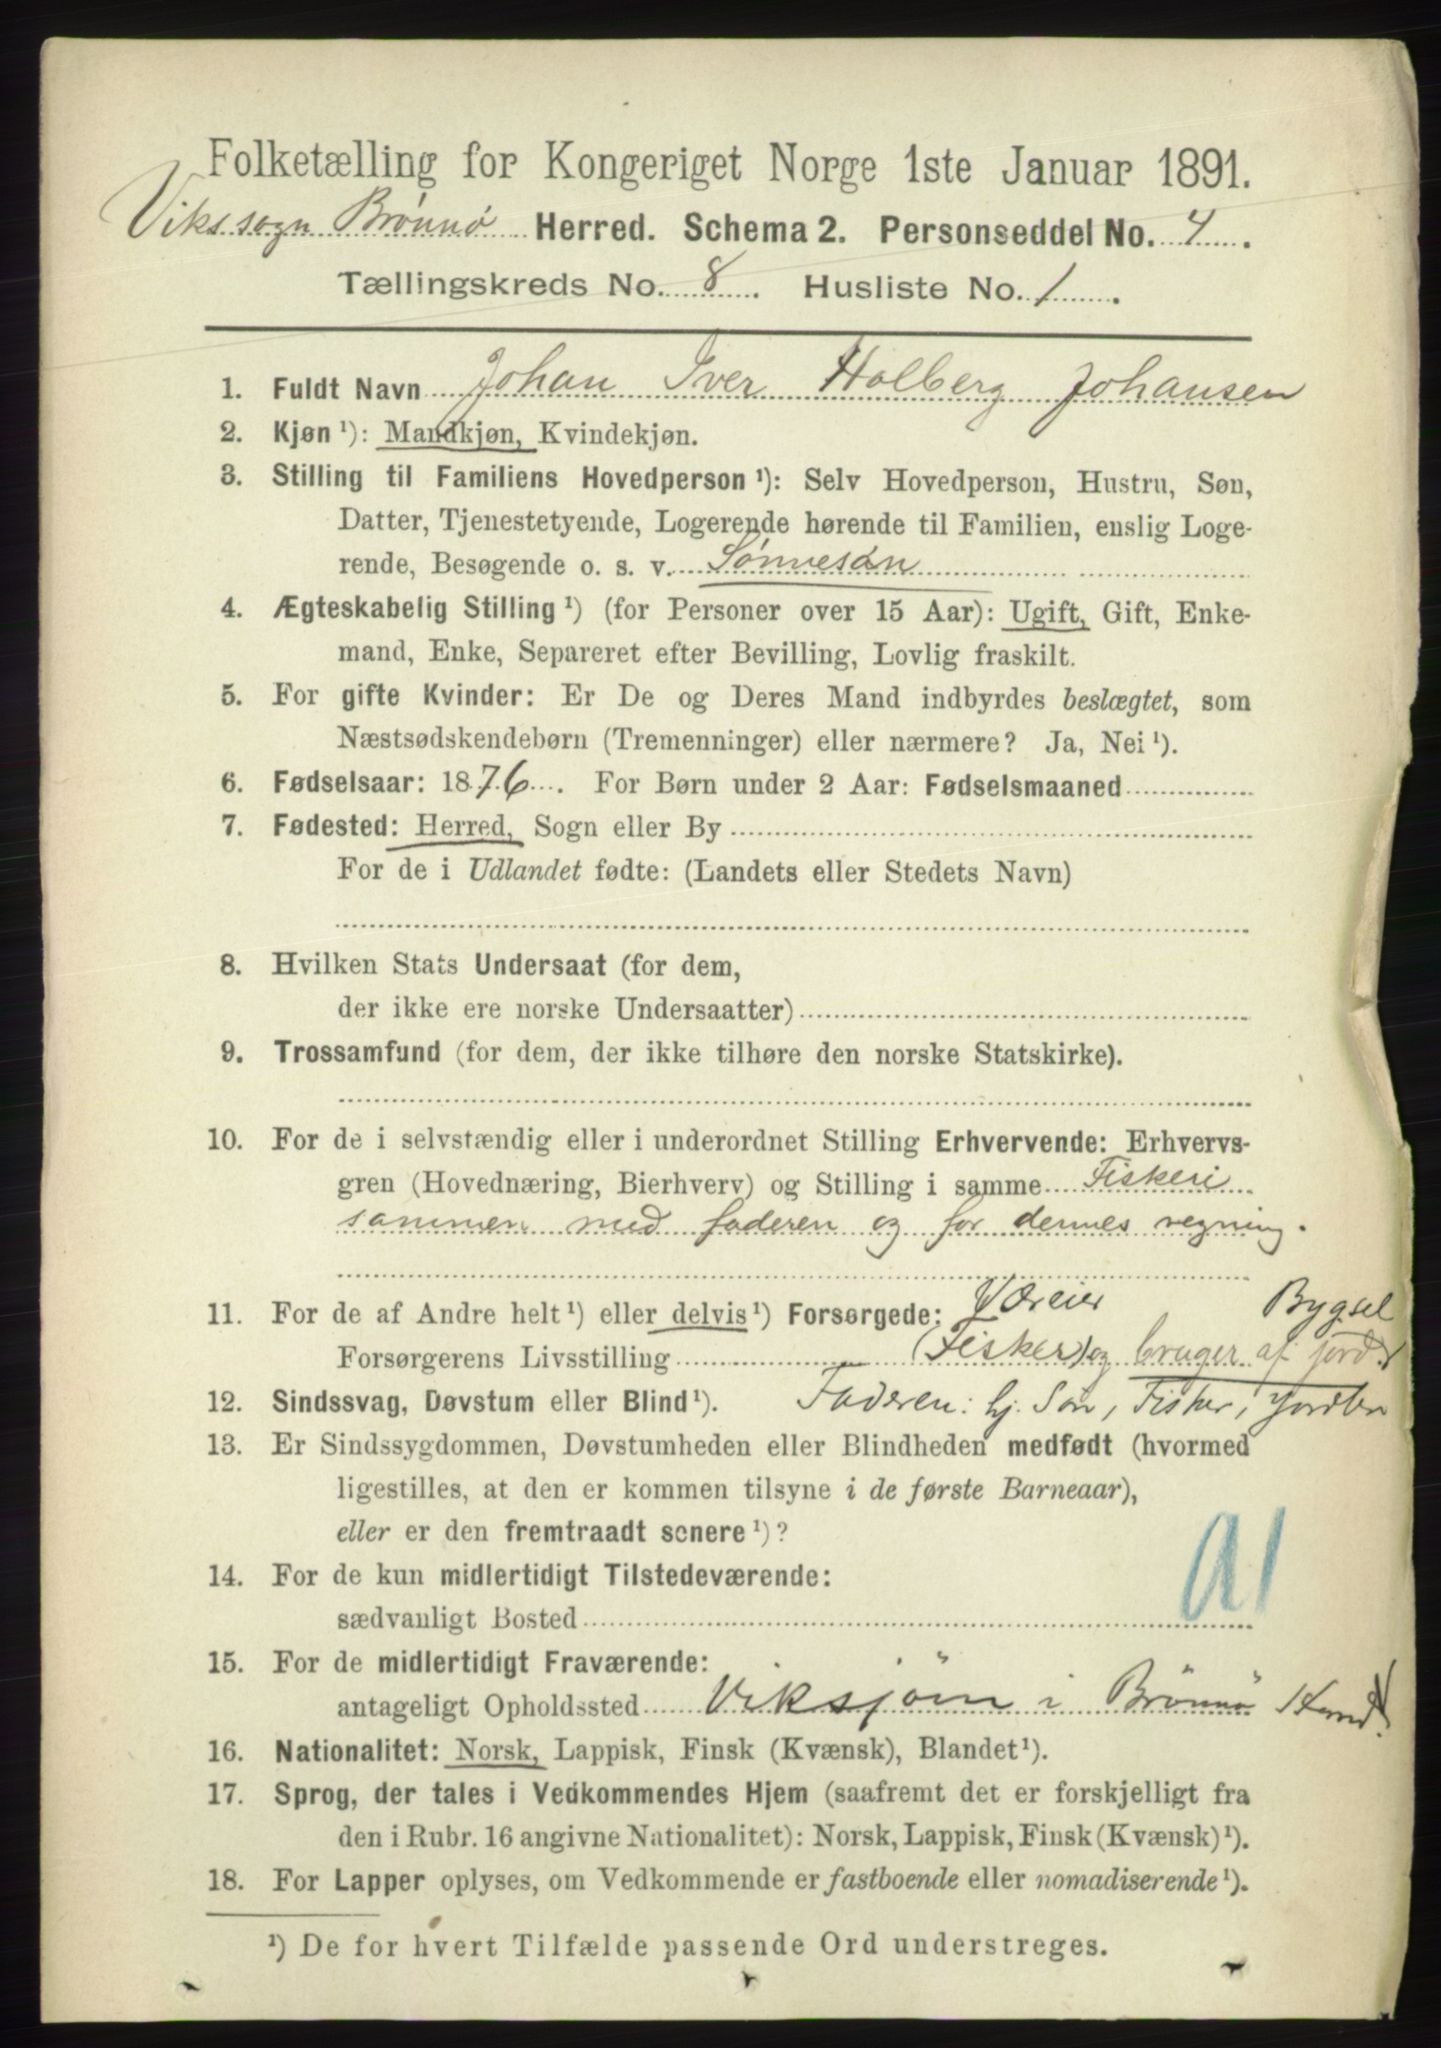 Folketælling for Kongeriget Norge 1ste Januar 1891.
Vikssogn Brønnø Herred. Schema 2. Personseddel No. 4.
Tællingskreds No. 8. Husliste No. 1.
1. Fuldt Navn Johan Iver Holberg Johansen
2. Kjøn ¹): Mandkjøn, Kvindekjøn.
3. Stilling til Familiens Hovedperson ¹): Selv Hovedperson, Hustru, Søn,
Datter, Tjenestetyende, Logerende hørende til Familien, enslig Loge-
rende, Besøgende o. s. v. Sønnesøn
4. Ægteskabelig Stilling ¹) (for Personer over 15 Aar): Ugift, Gift, Enke-
mand, Enke, Separeret efter Bevilling, Lovlig fraskilt.
5. For gifte Kvinder: Er De og Deres Mand indbyrdes beslægtet, som
Næstsødskendebørn (Tremenninger) eller nærmere? Ja, Nei ¹).
6. Fødselsaar: 1876. For Børn under 2 Aar: Fødselsmaaned
7. Fødested: Herred, Sogn eller By
For de i Udlandet fødte: (Landets eller Stedets Navn)
8. Hvilken Stats Undersaat (for dem,
der ikke ere norske Undersaatter)
9. Trossamfund (for dem, der ikke tilhøre den norske Statskirke).
10. For de i selvstændig eller i underordnet Stilling Erhvervende: Erhvervs-
gren (Hovednæring, Bierhverv) og Stilling i samme Fiskeri
sammen med faderen og for dennes regning.
11. For de af Andre helt ¹) eller delvis ¹) Forsørgede: Bygsel
Forsørgerens Livsstilling (Fisker) og bruger af jord.
12. Sindssvag, Døvstum eller Blind ¹). Faderen: hj. Søn, Fisker, Jordbr
13. Er Sindssygdommen, Døvstumheden eller Blindheden medfødt (hvormed
ligestilles, at den er kommen tilsyne i de første Barneaar),
eller er den fremtraadt senere ¹)?
14. For de kun midlertidigt Tilstedeværende:
sædvanligt Bosted
15. For de midlertidigt Fraværende:
antageligt Opholdssted Viksjöen i Brönnö
16. Nationalitet: Norsk, Lappisk, Finsk (Kvænsk), Blandet ¹).
17. Sprog, der tales i Vedkommendes Hjem (saafremt det er forskjelligt fra
den i Rubr. 16 angivne Nationalitet): Norsk, Lappisk, Finsk (Kvænsk) ¹).
18. For Lapper oplyses, om Vedkommende er fastboende eller nomadiserende ¹).
¹) De for hvert Tilfælde passende Ord understreges.